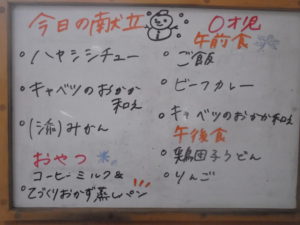 今日の献立
・ハヤシシチュー
・キャベツのおかか
和え
・(添)みかん
おやつ
・コーヒーミルク&
・てづくりおかず蒸しパン
0才児
午前食
・ご飯
・ビーフカレー
・キャベツのおかか和え
午後食
・鶏団子うどん
・りんご